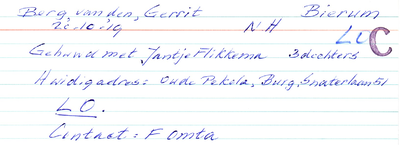 Burg, van den, Gerrit Bierum
20.10.19 N.H
LL C
Gehuwd met Jantje Flikkema 3 dochters
Huidig adres: Oude Pekela, Burg. Snaterlaan 51
L O.
Contact: F Omta